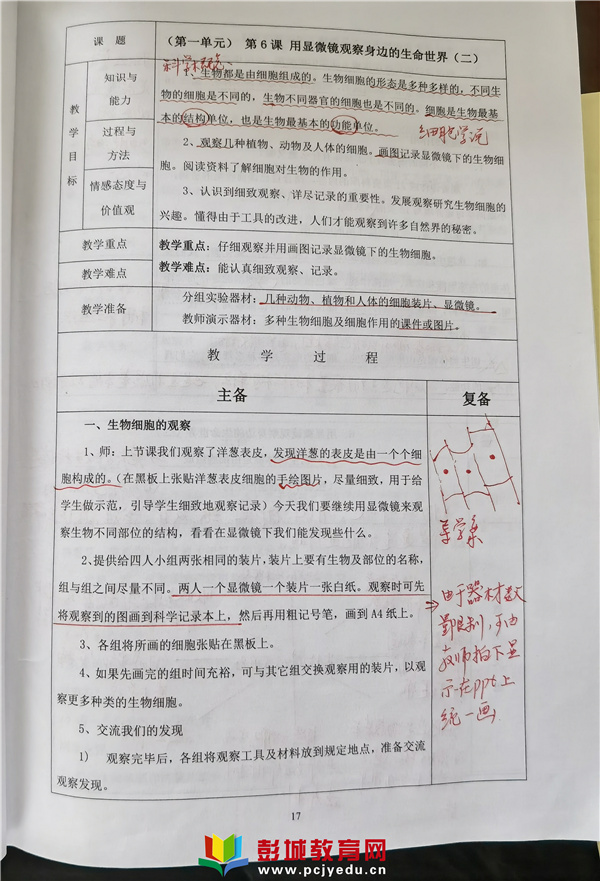 课 题
（第一单元） 第 6 课 用显微镜观察身边的生命世界（二）
教学目标
知识与
能力
科学概念、
1、生物都是由细胞组成的。生物细胞的形态是多种多样的，不同生
物的细胞是不同的，生物不同器官的细胞也是不同的。细胞是生物最基
本的结构单位，也是生物最基本的功能单位。
细胞学说
过程与
方法
2、观察几种植物、动物及人体的细胞。画图记录显微镜下的生物细
胞。阅读资料了解细胞对生物的作用。
情感态度与
价值观
3、认识到细致观察、详尽记录的重要性。发展观察研究生物细胞的
兴趣。懂得由于工具的改进，人们才能观察到许多自然界的秘密。
教学重点
教学重点：仔细观察并用画图记录显微镜下的生物细胞。
教学难点
教学难点：能认真细致观察、记录。
教学准备
分组实验器材：几种动物、植物和人体的细胞装片、显微镜。
教师演示器材：多种生物细胞及细胞作用的课件或图片。
教 学 过 程
主备
复备
一、生物细胞的观察
1、师：上节课我们观察了洋葱表皮，发现洋葱的表皮是由一个个细
胞构成的。（在黑板上张贴洋葱表皮细胞的手绘图片，尽量细致，用于给
学生做示范，引导学生细致地观察记录）今天我们要继续用显微镜来观
察生物不同部位的结构，看看在显微镜下我们能发现些什么。
2、提供给四人小组两张相同的装片，装片上要有生物及部位的名称，
组与组之间尽量不同。两人一个显微镜一个装片一张白纸。观察时可先
将观察到的图画到科学记录本上，然后再用粗记号笔，画到 A4 纸上。
3、各组将所画的细胞张贴在黑板上。
4、如果先画完的组时间充裕，可与其它组交换观察用的装片，以观
察更多种类的生物细胞。
5、交流我们的发现
1） 观察完毕后，各组将观察工具及材料放到规定地点，准备交流
观察发现。
导学案
由于器材数
量限制，可由
教师拍下显
示在ppt上
统一画
17
彭城教育网
www.pcjyedu.cn